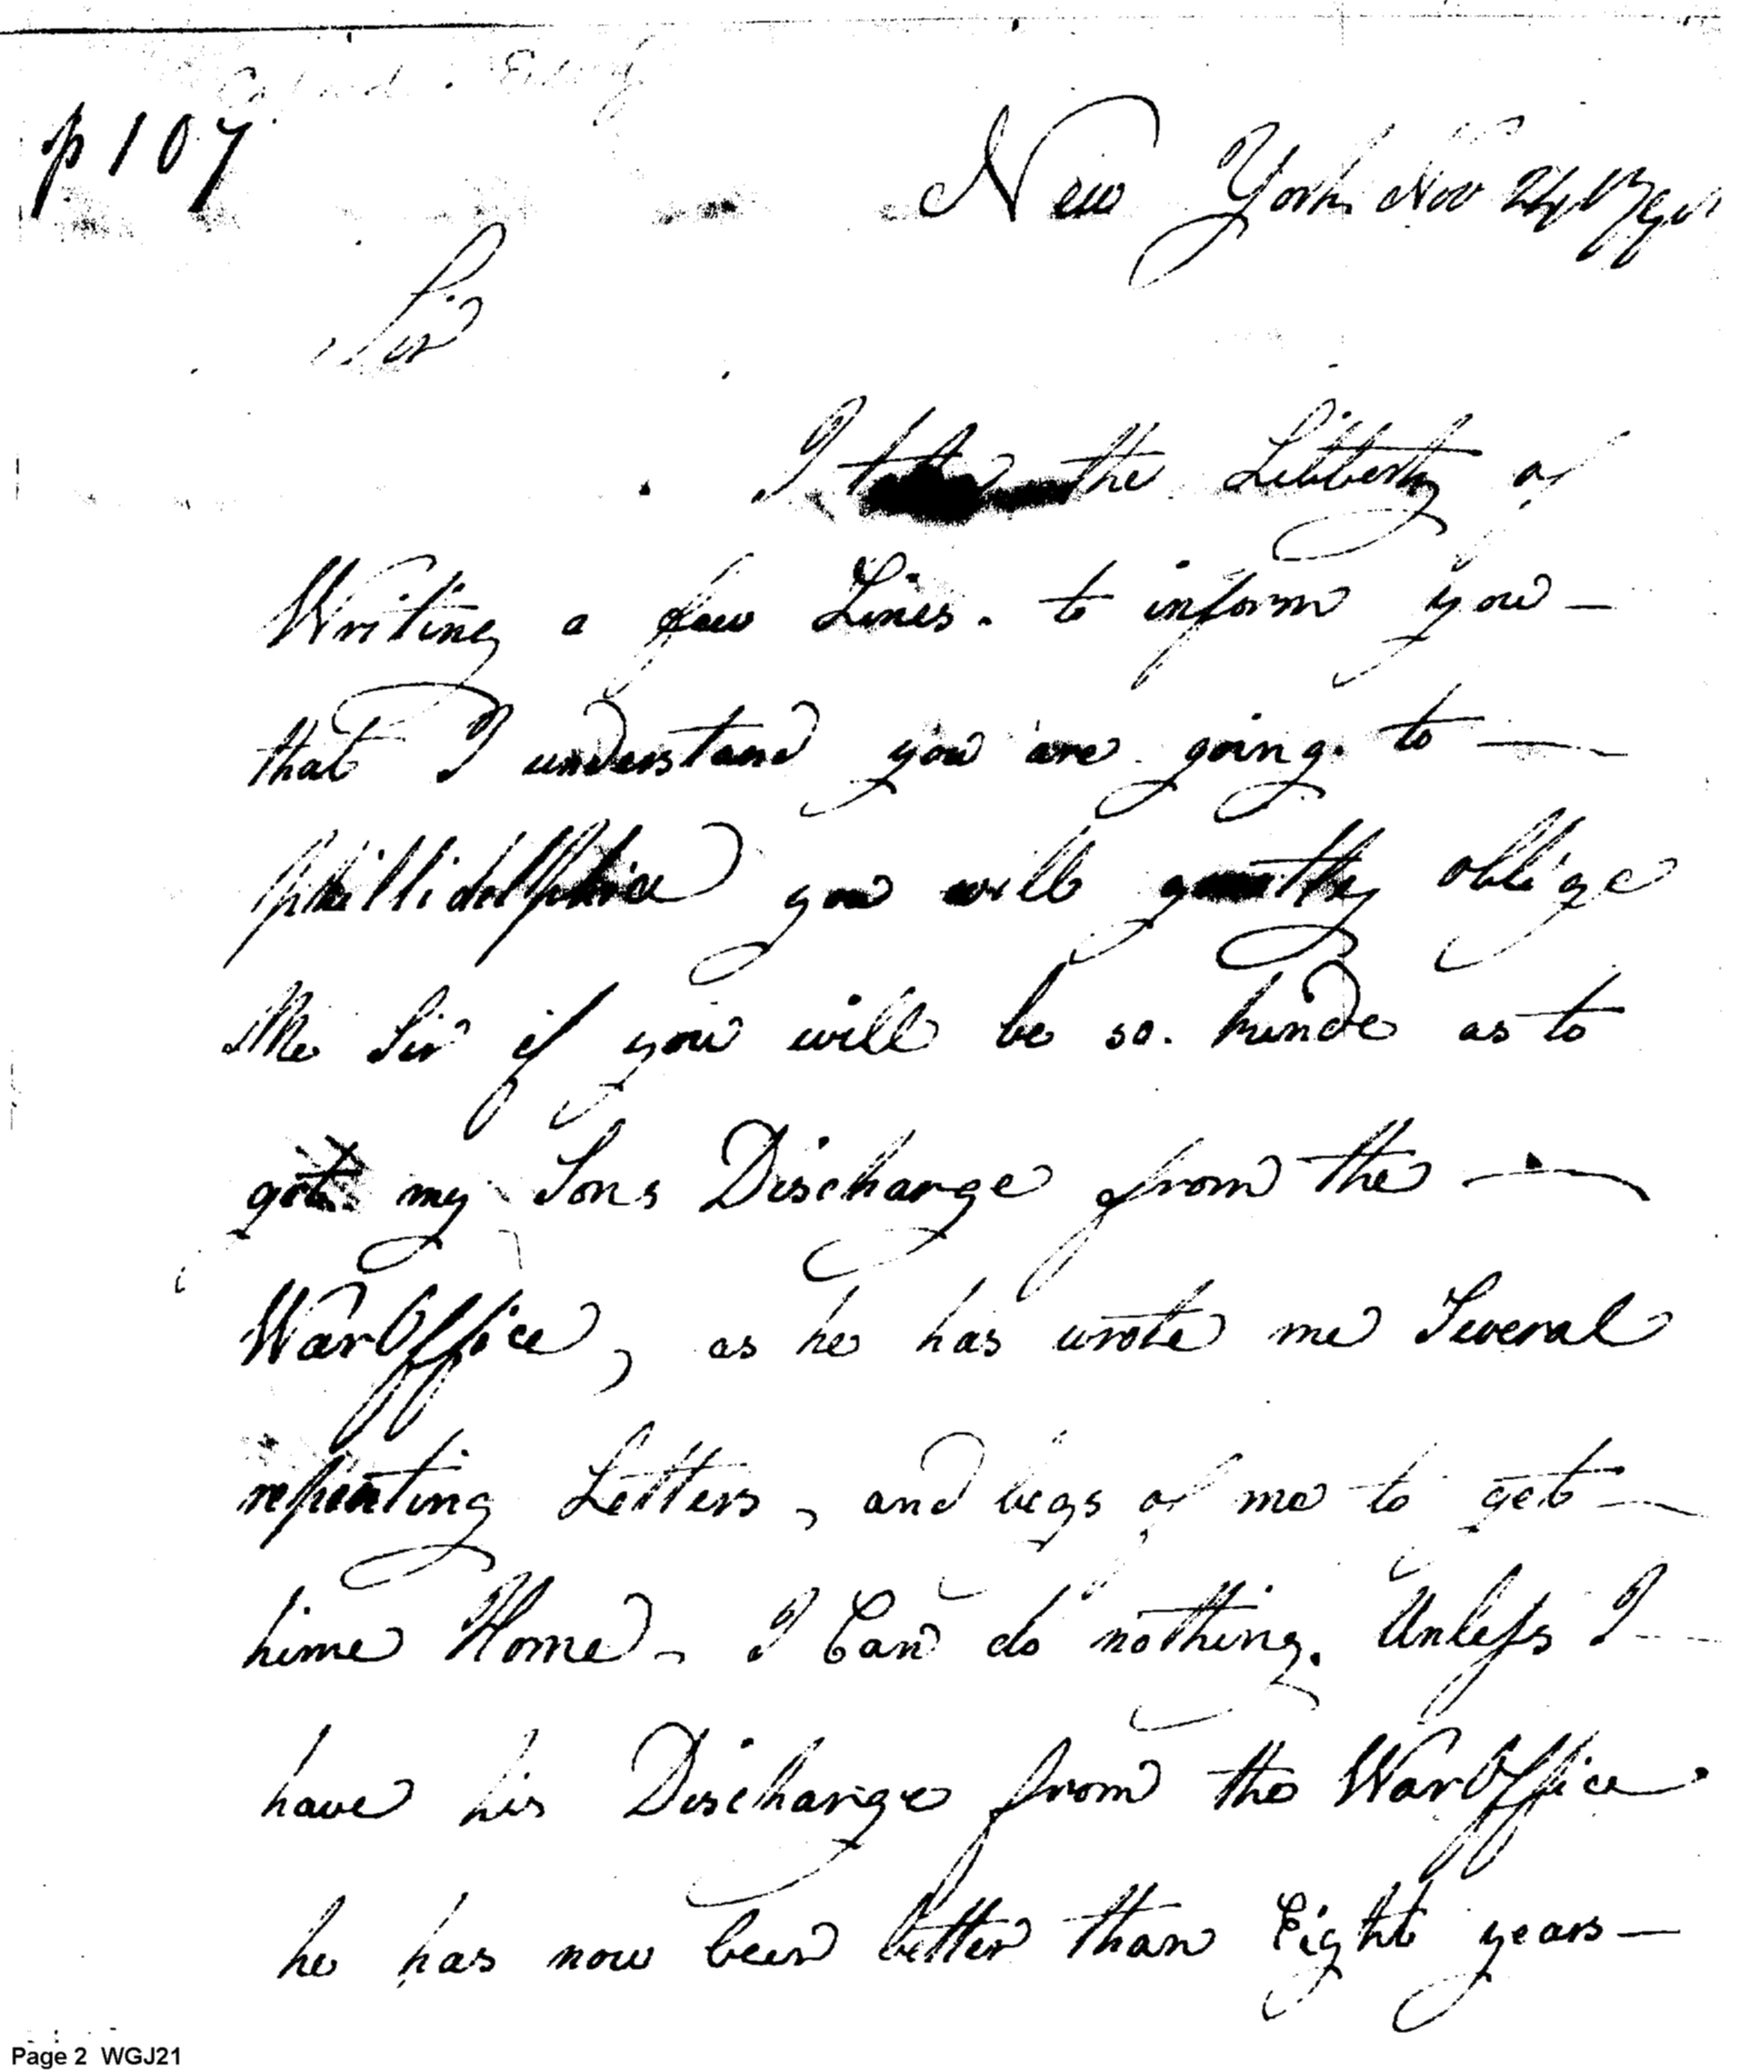 p 107
New York Nov 24
Sir
I take the Libberty of
Writing a few Lines. to inform you —
that I understand you are going to —
phillidelphia you will greatly oblige
Me Sir if you will be so kinde as to
get my Sons Discharge from the —
War Office, as he has wrote me Several
repenting Letters, and begs of me to get —
hime Home - I Can do nothing. Unless I —
have his Discharge from the War Office
he has now been better than Eight years —
Page 2 WGJ21